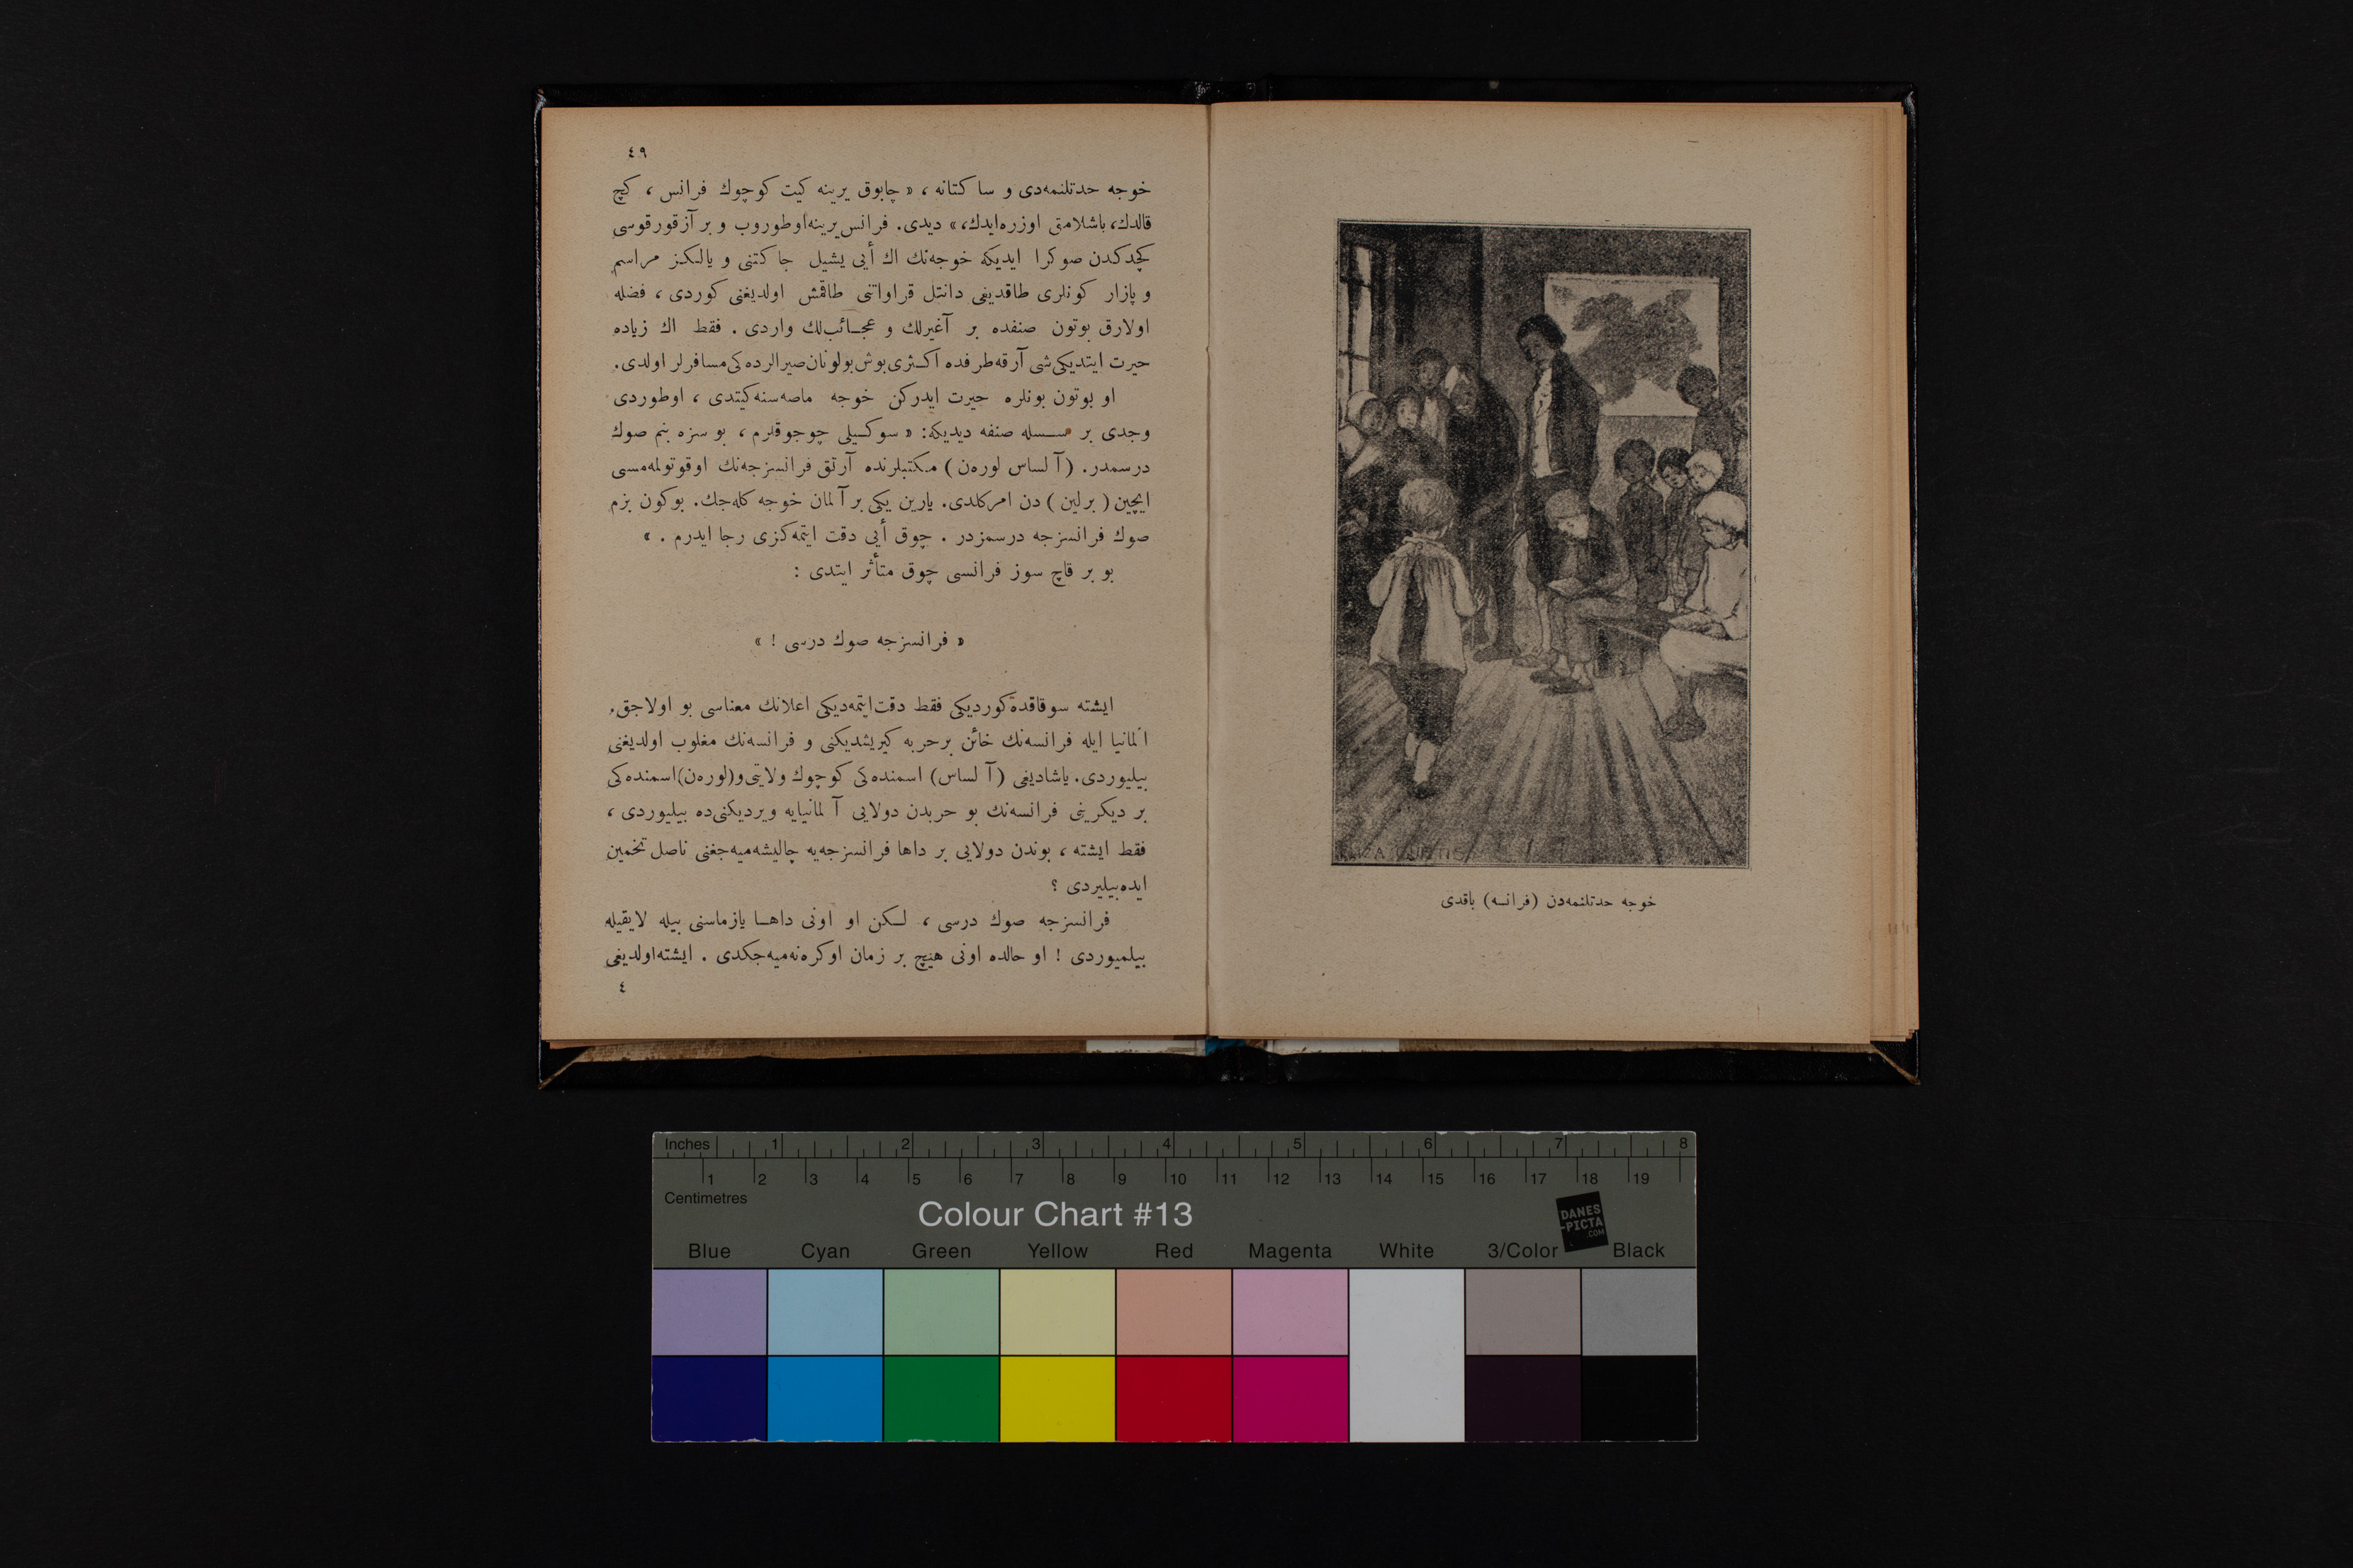 خوجه حدتلنمه‌دن (فرانسه) باقدی
٤٩
خوجه حدتلنمه‌دی و ساكتانه ، « چابوق یرینه كیت كوچوك فرانس ، كچ
قالدك، باشلامق اوزره‌ایدك، » دیدی. فرانس یرینه اوطوروب و بر آز قورقوسی
كچدكدن صوكرا ایدیكه خوجه‌نك اك أیی یشیل جاكتنی و یالكز مراسم
و پازار كونلری طاقدیغی دانتل قراواتنی طاقمش اولدیغنی كوردی ، فضله
اولارق بوتون صنفده بر آغیرلك و عجائب‌لك واردی . فقط اك زیاده
حیرت ایتدیكی شی آرقه طرفده اكثری بوش بولونان صیرالرده كی مسافرلر اولدی.
او بوتون بونلره حیرت ایدركن خوجه ماصه‌سنه كیتدی ، اوطوردی
وجدی بر سسله صنفه دیدیكه: « سوكیلی چوجوقلرم ، بو سزه بنم صوك
درسمدر. (آلساس لوره‌ن) مكتبلرنده آرتق فرانسزجه‌نك اوقوتولمه‌مسی
ایچین ( برلین ) دن امر كلدی. یارین یكی بر آلمان خوجه كله‌جك. بوكون بزم
صوك فرانسزجه درسمزدر . چوق أیی دقت ایتمه‌كزی رجا ایدرم . »
بو بر قاچ سوز فرانسی چوق متأثر ایتدی :
« فرانسزجه صوك درسی ! »
ایشته سوقاقده كوردیكی فقط دقت ایتمه‌دیكی اعلانك معناسی بو اولاجق.
المانیا ایله فرانسه‌نك خائن بر حربه كیریشدیكنی و فرانسه‌نك مغلوب اولدیغنی
بیلیوردی. یاشادیغی (آلساس) اسمنده كی كوچوك ولایتی و(لوره‌ن)اسمنده كی
بر دیكرینی فرانسه‌نك بو حربدن دولایی آلمانیایه ویردیكنی‌ده بیلیوردی ،
فقط ایشته ، بوندن دولایی بر داها فرانسزجه‌یه چالیشه‌میه‌جغنی ناصل تخمین
ایده‌بیلیردی ؟
فرانسزجه صوك درسی ، لكن او اونی داها یازماسنی بیله لایقیله
بیلمیوردی ! او حالده اونی هیچ بر زمان اوكره‌نه‌میه‌جكدی . ایشته اولدیغی
٤
Inches 1 2 3 4 5 6 7 8
1 2 3 4 5 6 7 8 9 10 11 12 13 14 15 16 17 18 19
Centimetres
Colour Chart #13
DANES
-PICTA
.COM
Blue Cyan Green Yellow Red Magenta White 3/Color Black